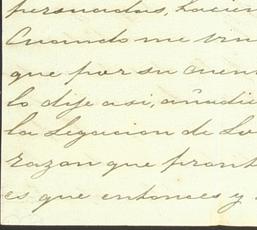 persuadas, hacien
Cuando me vin
que por su cuen
lo dije asi, añadie
la Legacion de Lo
razon que pront
es que entonces y